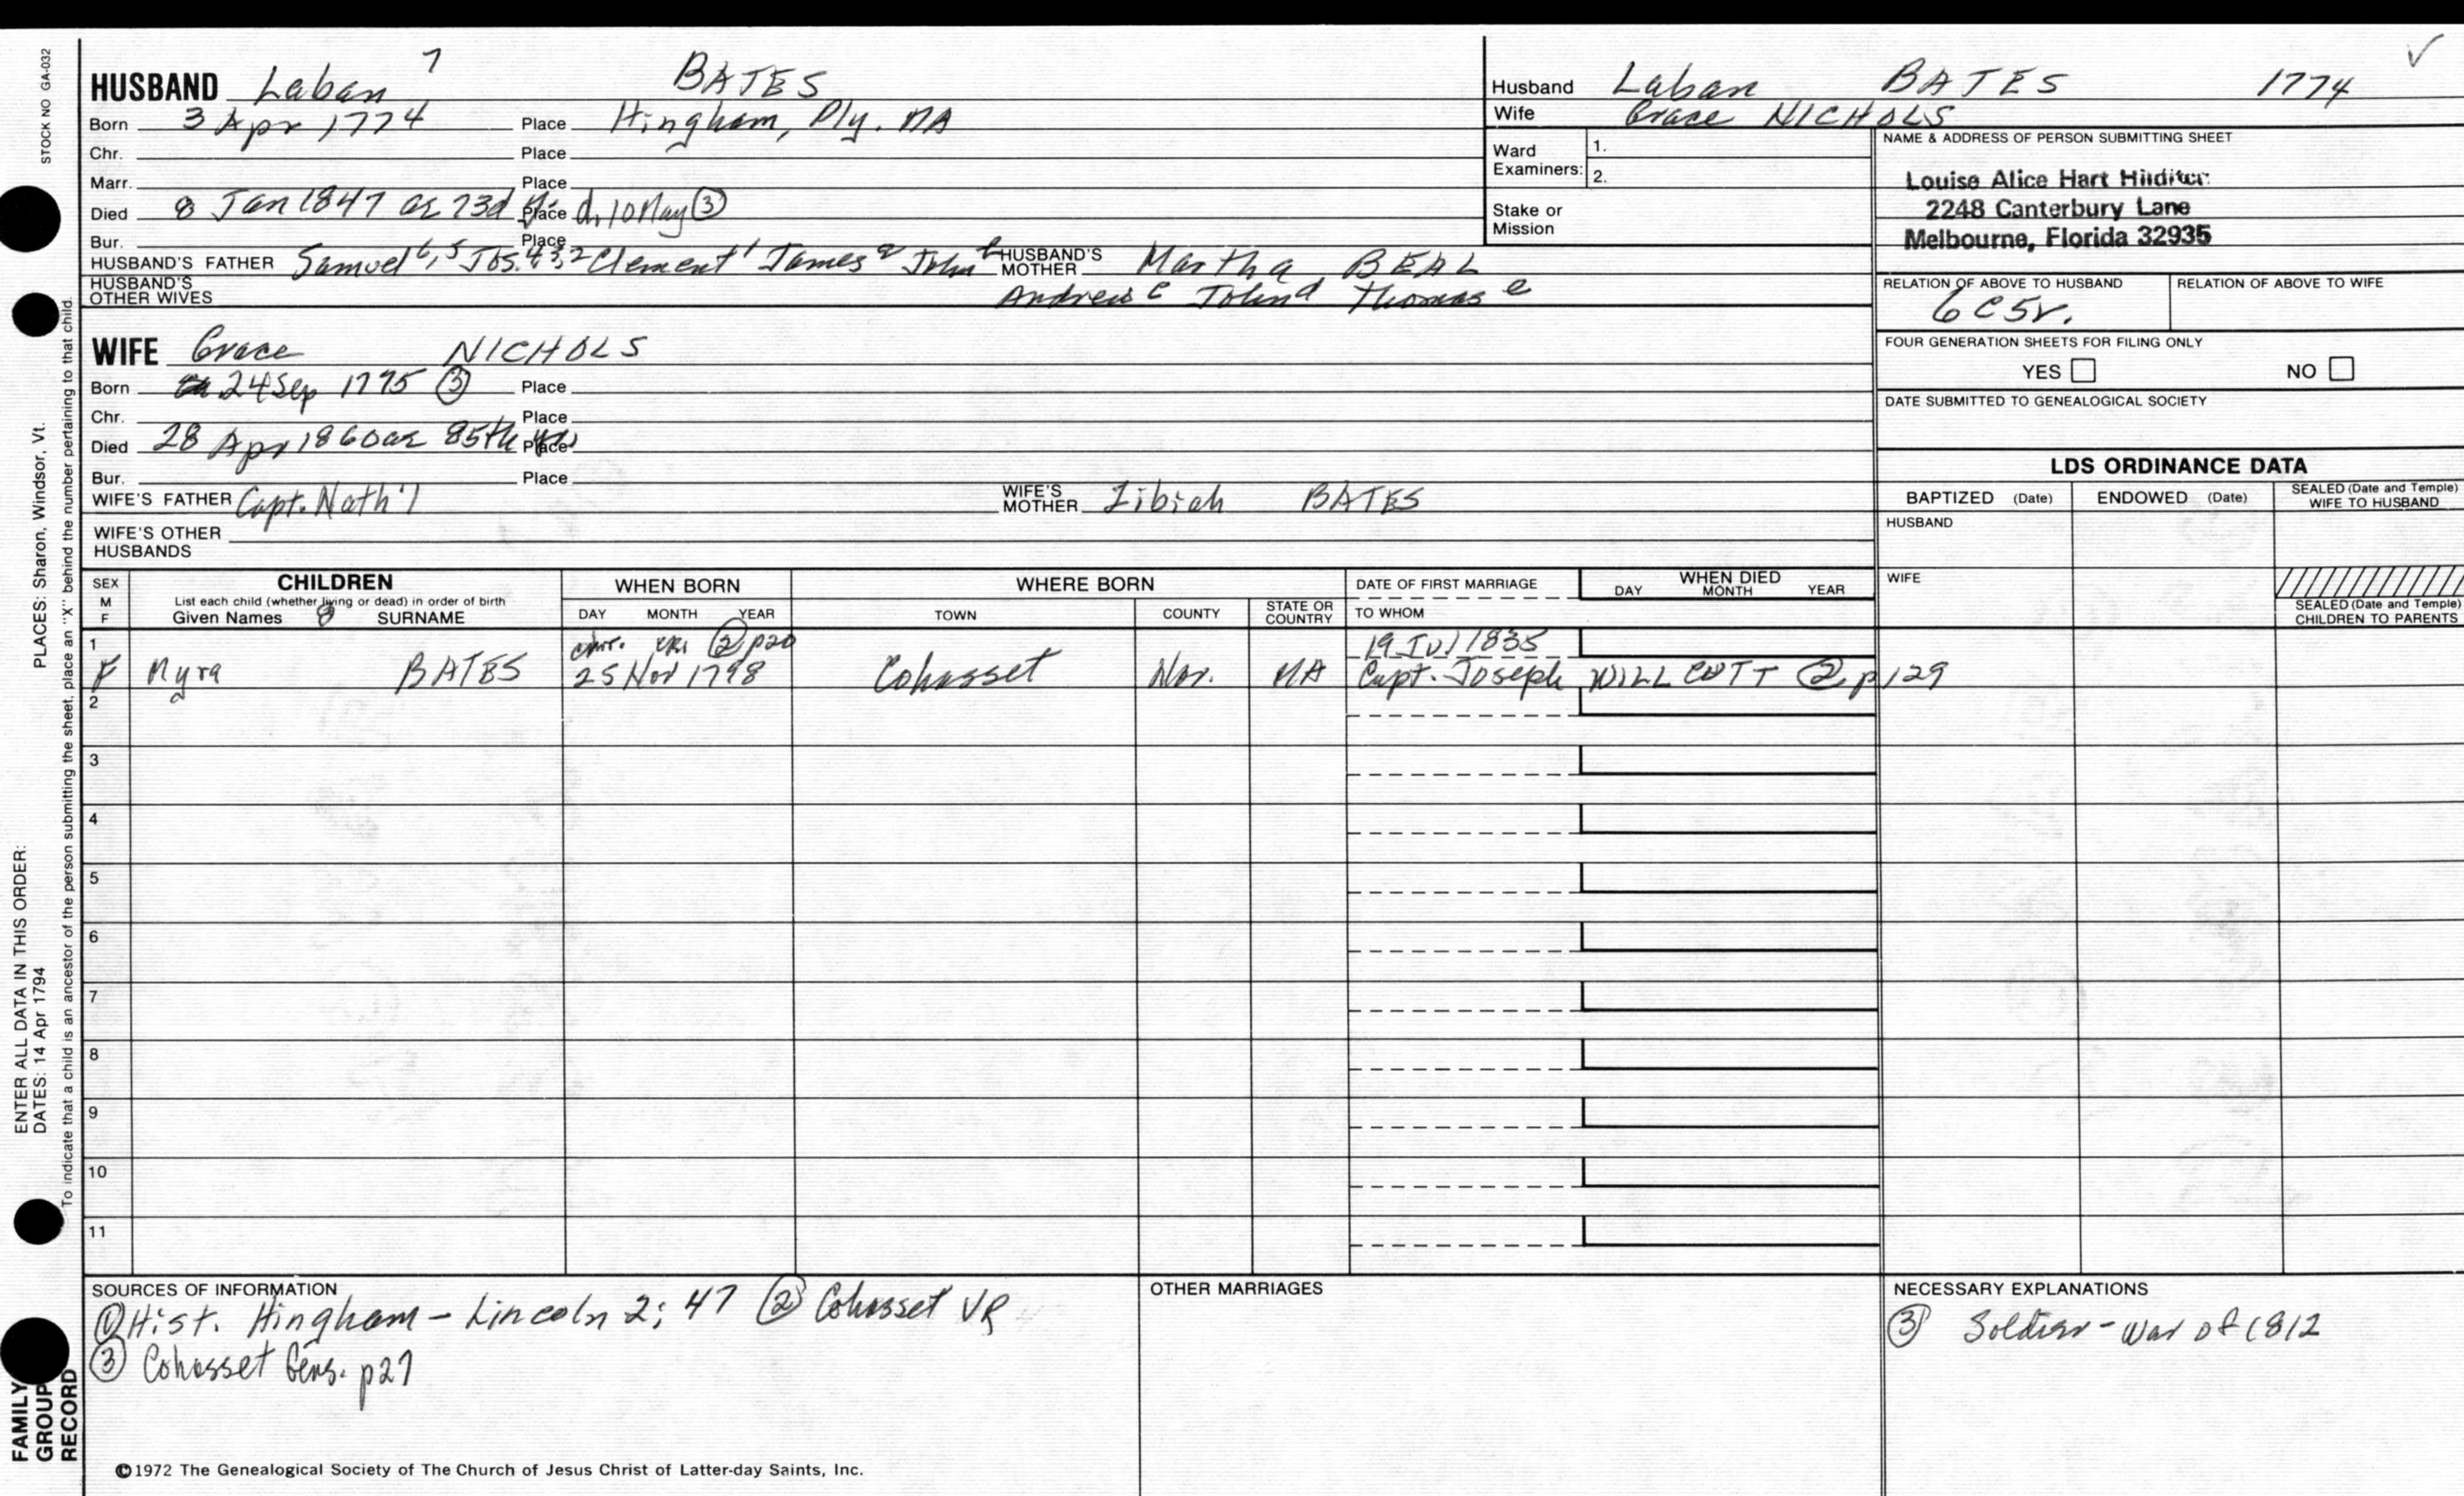 HUSBAND Laban 7 BATES
Born 3 Apr 1774 Place Hingham, Ply. MA
Chr. Place
Marr. Place
Died 8 Jan 1847 ae 73d Place d. 10 May ③
Bur. Place
HUSBAND'S FATHER Samuel 6,5 Jos. 4,3,2 Clement 1 James a John b HUSBAND'S MOTHER Martha BEAL
HUSBAND'S OTHER WIVES Andrew c John d Thomas e
WIFE Grace NICHOLS
Born 24 Sep 1775 ③ Place
Chr. Place
Died 28 Apr 1860 ae 85th yr Place
Bur. Place
WIFE'S FATHER Capt. Nath'l WIFE'S MOTHER Zibiah BATES
WIFE'S OTHER HUSBANDS
Husband Laban BATES 1774
Wife Grace NICHOLS
Ward Examiners: 1.
2.
Stake or Mission
NAME & ADDRESS OF PERSON SUBMITTING SHEET
Louise Alice Hart
2248 Canterbury Lane
Melbourne, Florida 32935
RELATION OF ABOVE TO HUSBAND RELATION OF ABOVE TO WIFE
6C5r.
FOUR GENERATION SHEETS FOR FILING ONLY
YES NO
DATE SUBMITTED TO GENEALOGICAL SOCIETY
LDS ORDINANCE DATA
BAPTIZED (Date) ENDOWED (Date) SEALED (Date and Temple) WIFE TO HUSBAND
HUSBAND
WIFE
SEALED (Date and Temple) CHILDREN TO PARENTS
SEX M F
CHILDREN
List each child (whether living or dead) in order of birth
Given Names 8 SURNAME
WHEN BORN
DAY MONTH YEAR
WHERE BORN
TOWN COUNTY STATE OR COUNTRY
DATE OF FIRST MARRIAGE
TO WHOM
WHEN DIED
DAY MONTH YEAR
1 ② p20 19 Jul 1835
F Myra BATES 25 Nov 1798 Cohasset Nor. MA Capt. Joseph WILLCUTT ② p129
2
3
4
5
6
7
8
9
10
11
SOURCES OF INFORMATION
① Hist. Hingham - Lincoln 2; 47 ② Cohasset VR
③ Cohasset Gens. p27
OTHER MARRIAGES
NECESSARY EXPLANATIONS
③ Soldier - War of 1812
©1972 The Genealogical Society of The Church of Jesus Christ of Latter-day Saints, Inc.
STOCK NO GA-032
ENTER ALL DATA IN THIS ORDER: PLACES: Sharon, Windsor, Vt.
DATES: 14 Apr 1794
To indicate that a child is an ancestor of the person submitting the sheet, place an "X" behind the number pertaining to that child.
FAMILY GROUP RECORD